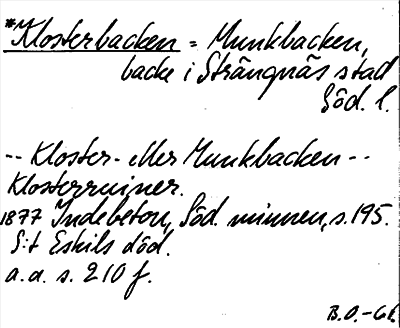 *Klosterbacken = Munkbacken,
backe i Strängnäs stad
Söd. l.
-- Kloster- eller Munkbacken --
Klosterruiner.
1877 Indebetou, Söd. minnen, s. 195.
S:t Eskils död.
a.a. s. 210 f.
B.O. -61.